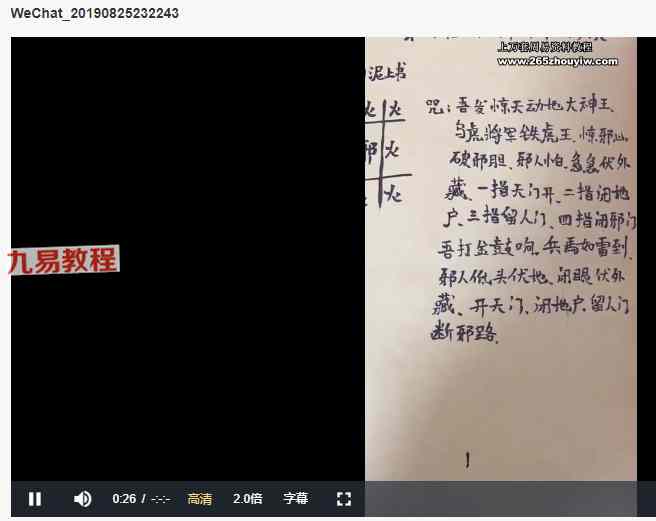 WeChat_20190825232243
上万套周易资料教程
www.265zhouyiw.com
泥上书
火 火
邪 火
火
咒：吾发惊天动地大神王、
乌虎将军铁虎王、惊邪山
破邪胆、邪人怕、急急伏外
藏、一指天门开、二指闭地
户、三指留人门、四指闭邪门
吾打金鼓响、兵马如雷到、
邪人低头伏地、闭眼伏外
藏、开天门、闭地户、留人门
断邪路、
九易教程
0:26 / -:-:-
高清
2.0倍
字幕